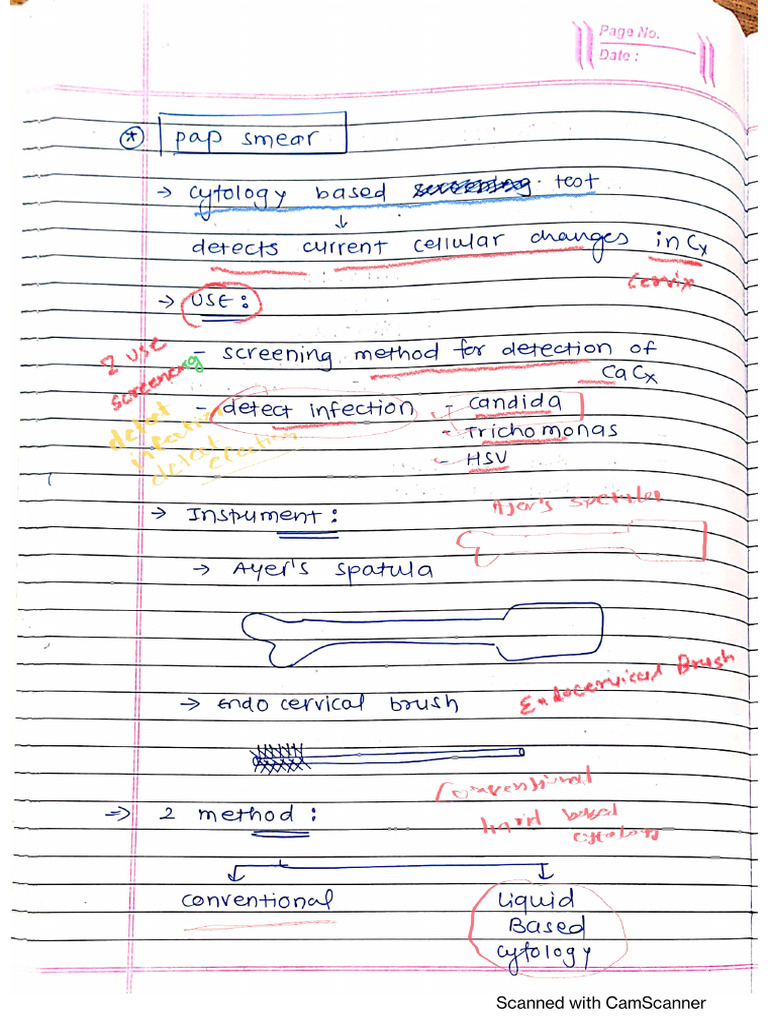 Page No.
Date :
* pap smear
→ cytology based test
↓
detects current cellular changes in Cx
cervix
→ USE :
2 use
screening
- screening method for detection of
CaCx
- detect infection - candida
- Trichomonas
- HSV
detect
infection
detect
→ Instument :
Ayer's spetula
→ Ayer's spatula
→ Endo cervical brush
Endocervical Brush
Conventional
⇒ 2 method :
liquid based
cytology
conventional
Liquid
Based
cytology
Scanned with CamScanner